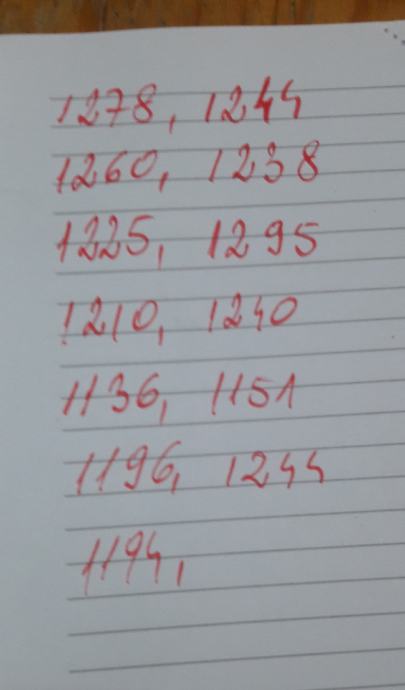 1278, 1244
1260, 1238
1225, 1295
1210, 1240
1136, 1151
1196, 1244
1194,